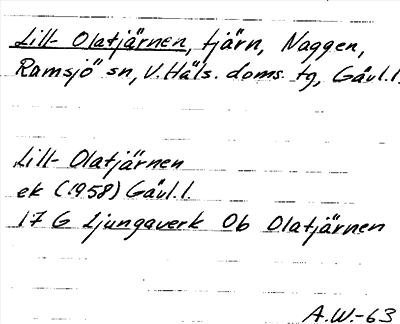 Lill- Olatjärnen, tjärn, Naggen,
Ramsjö sn, V. Häls. doms. tg, Gävl. l.
Lill- Olatjärnen
ek (1958) Gävl. l.
17 G Ljungaverk Ob Olatjärnen
A.W.-63